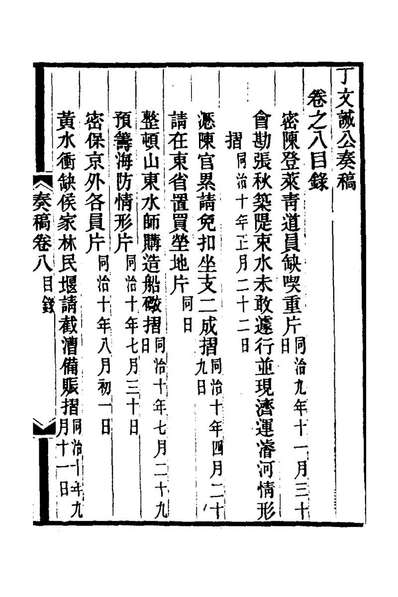 丁文誠公奏稿
卷之八目錄
密陳登萊靑道員缺喫重片同治九年十一月三十日
會勘張秋築隄束水未敢遽行並現濟運濬河情形
摺同治十年正月二十二日
瀝陳官累請免扣坐支二成摺同治十年四月二十九日
請在東省置買塋地片同日
整頓山東水師購造船礮摺同治十年七月二十九日
預籌海防情形片同治十年七月三十日
密保京外各員片同治十年八月初一日
黃水衝缺侯家林民堰請截漕備賑摺同治十年九月十一日
奏稿卷八目錄